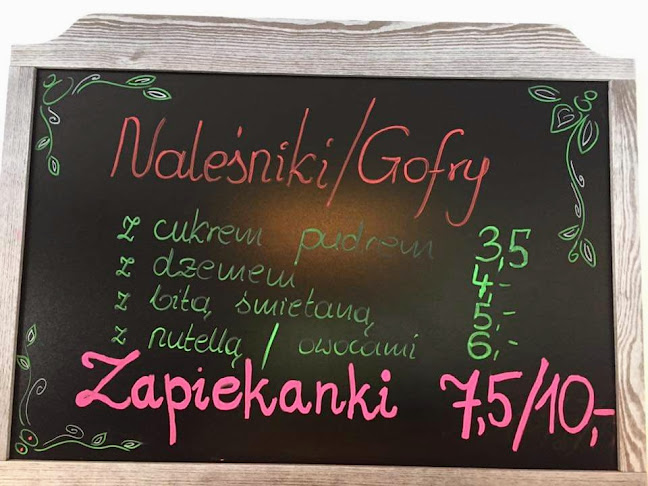 Naleśniki/Gofry
z cukrem pudrem 3,5
z dżemem 4,-
z bitą śmietaną 5,-
z nutellą / owocami 6,-
Zapiekanki 7,5/10,-